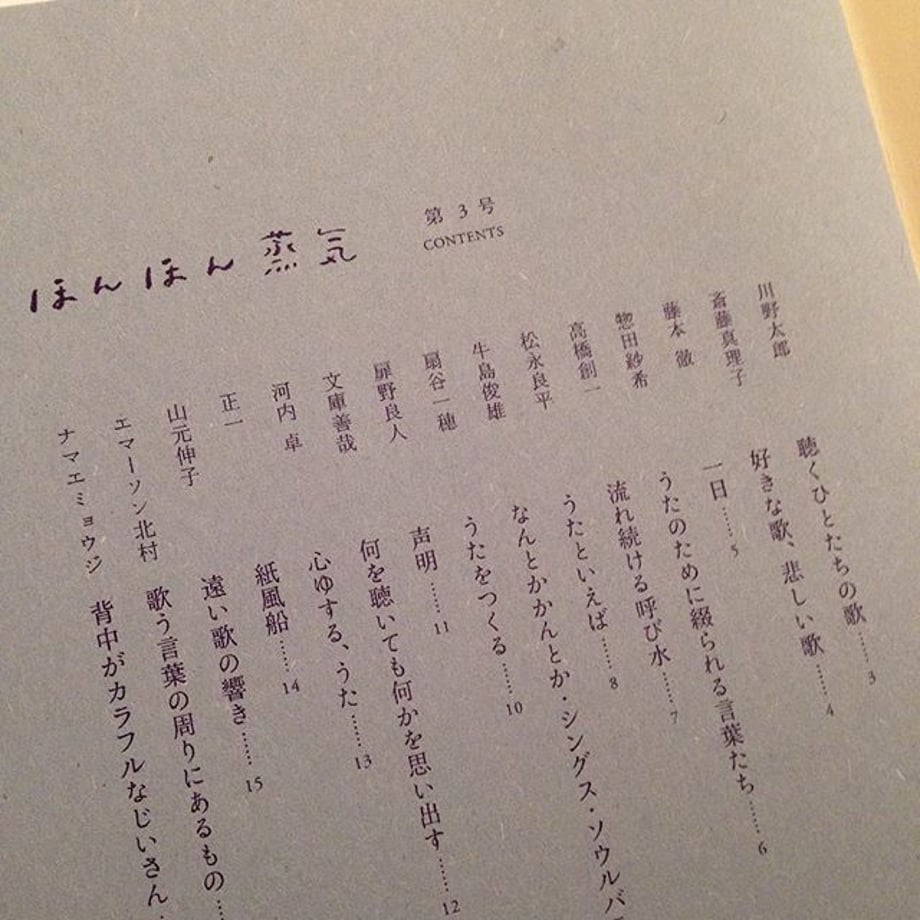 ほんほん蒸気
第3号
CONTENTS
川野太郎 聴くひとたちの歌……3
斎藤真理子 好きな歌、悲しい歌……4
藤本 徹 一日……5
惣田紗希 うたのために綴られる言葉たち……6
高橋創一 流れ続ける呼び水……7
松永良平 うたといえば……8
牛島俊雄 なんとかかんとか・シングス・ソウルバ
扇谷一穂 うたをつくる……10
扉野良人 声明……11
文庫善哉 何を聴いても何かを思い出す……12
河内 卓 心ゆする、うた……13
正一 紙風船……14
山元伸子 遠い歌の響き……15
エマーソン北村 歌う言葉の周りにあるもの…
ナマエミョウジ 背中がカラフルなじいさん